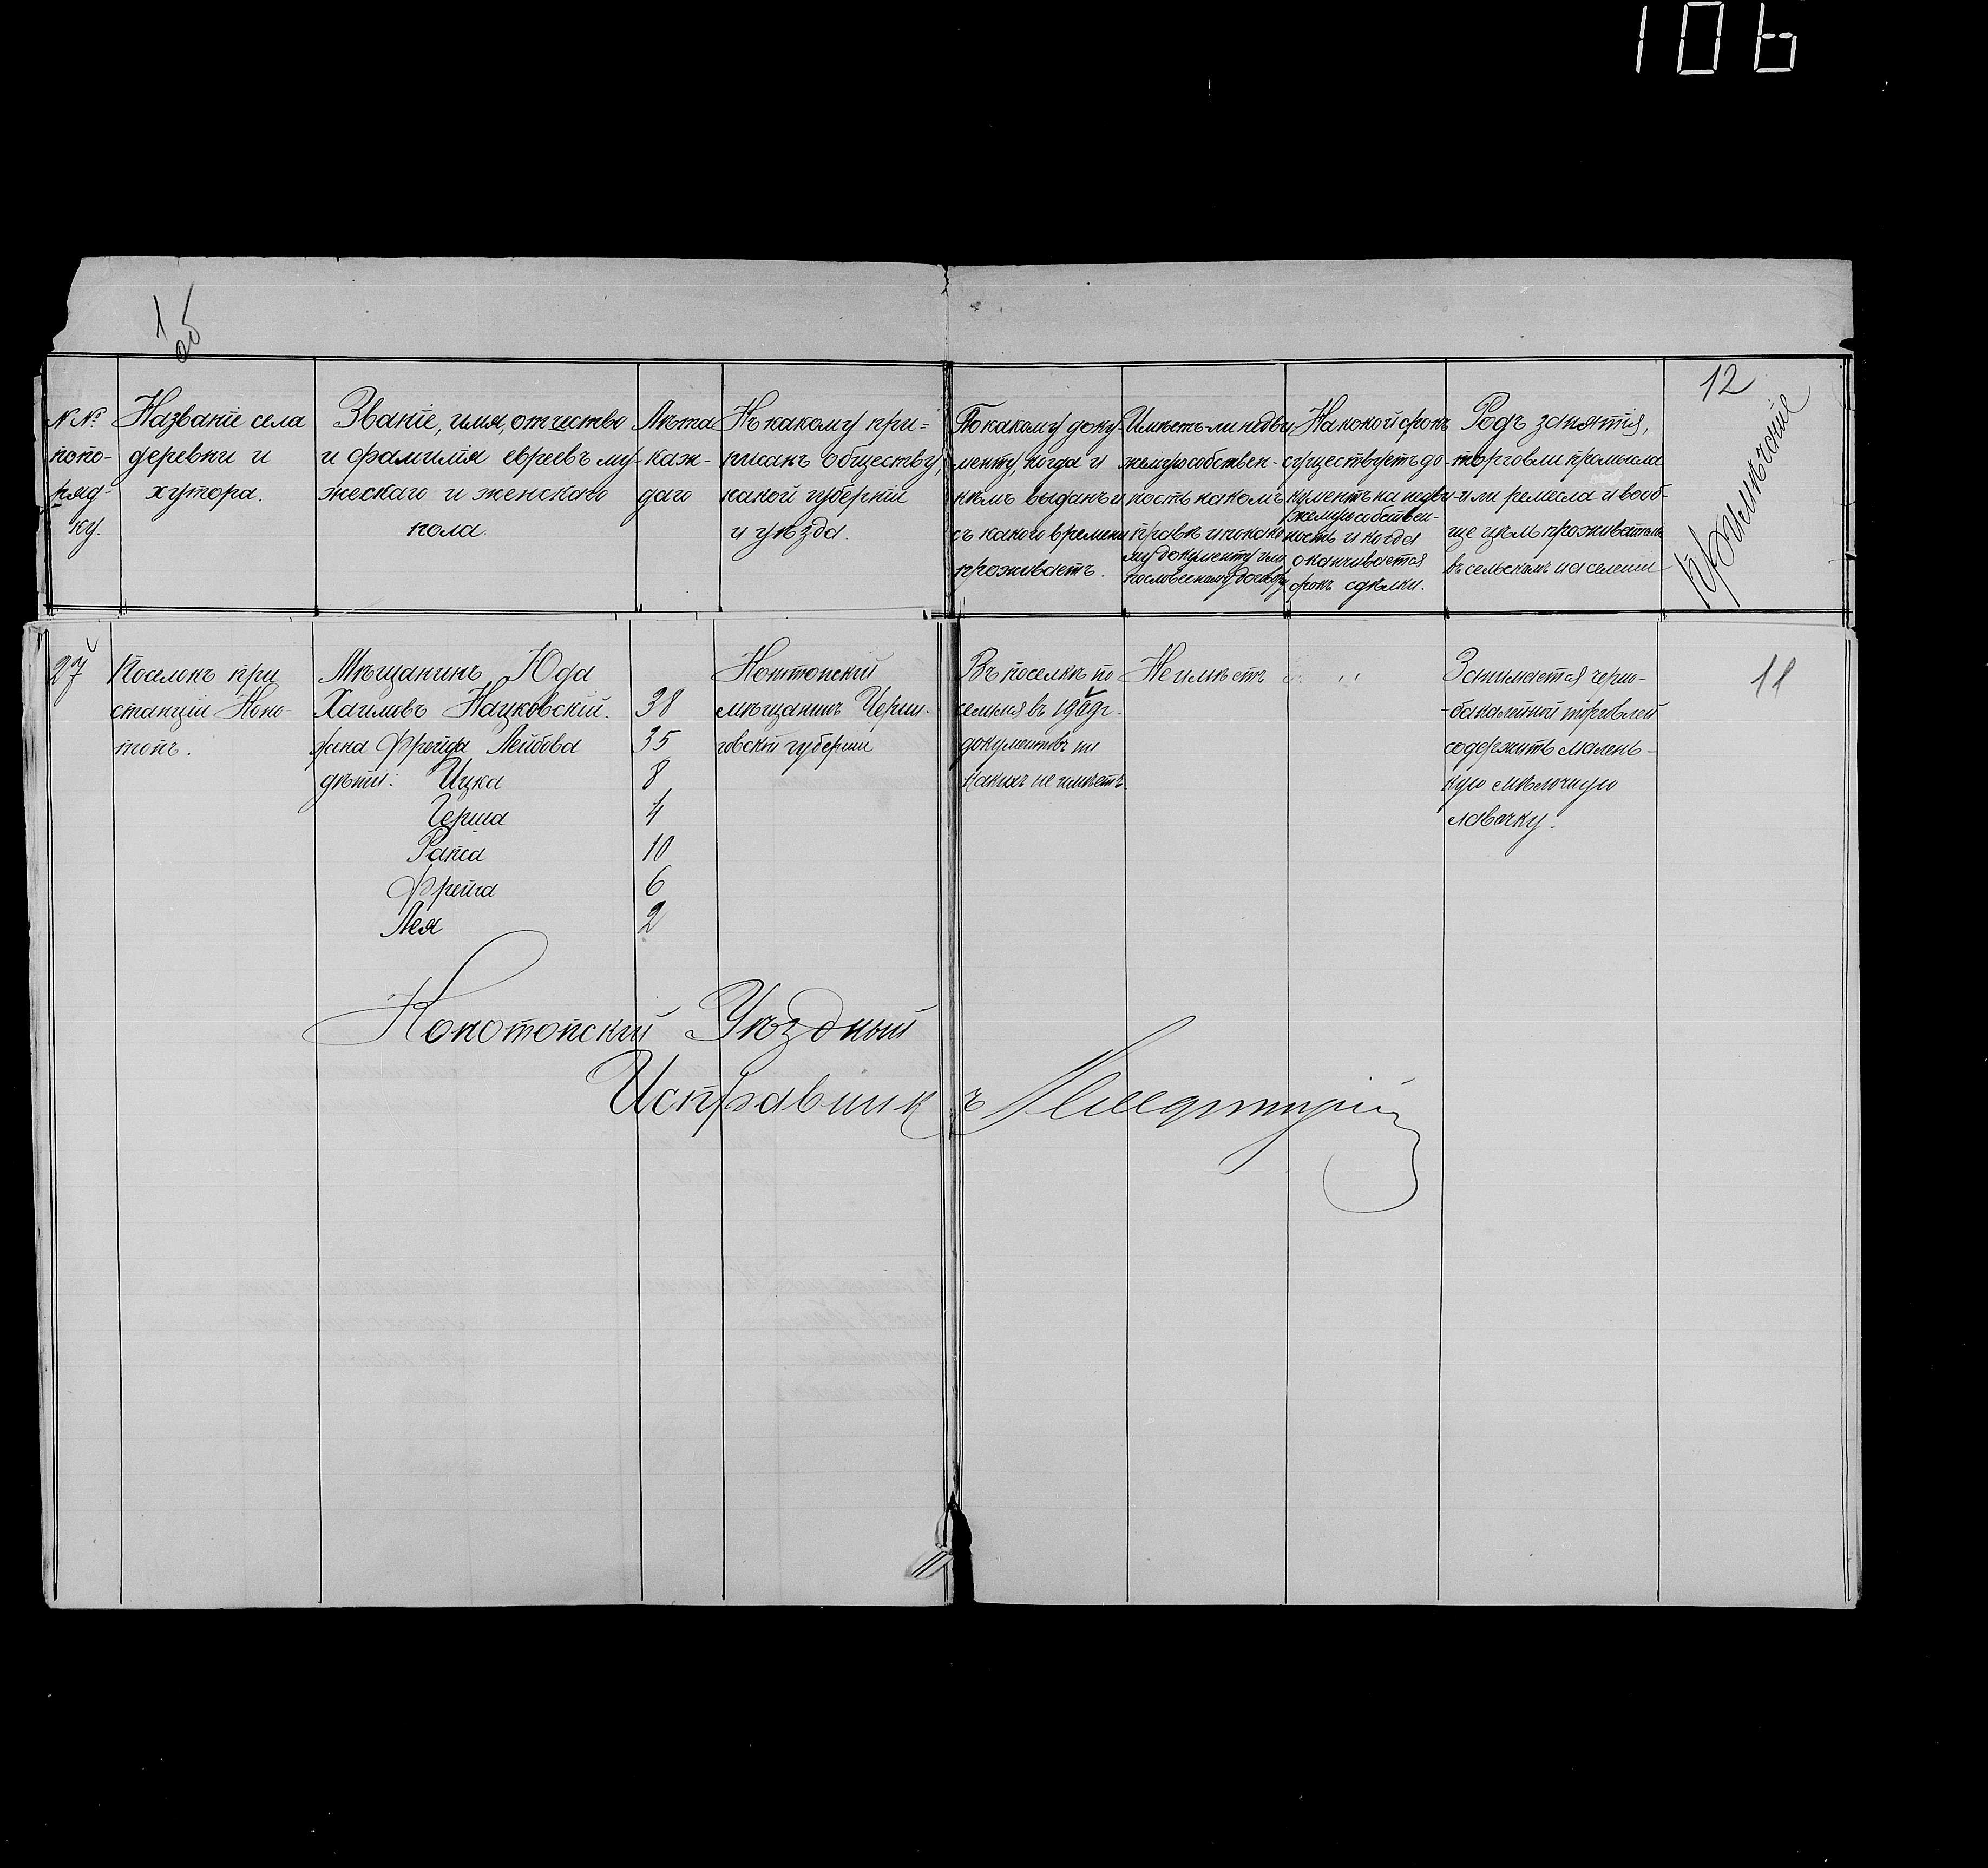 106
1 об
12
№№ попо-ряд-ку.
Названіе села
деревни и
хутора.
Званіе, имя, отчество
и фамилія евреевъ му-
жескаго и женскаго
пола.
Лѣта
каж-
даго
Къ какому при=
писанъ обществу,
какой губерніи
и уѣзда.
По какому доку-
менту, когда и
кѣмъ выданъ и
съ какого времени
проживаетъ.
Имѣетъ-ли недви-
жемую собствен-
ность на комъ
правѣ и по како-
му документу или
словесному договору
На какой срокъ
существуетъ до-
кументъ на недви-
жемую собствен-
ность и когда
оканчивается
срокъ сдѣлки.
Родъ занятія,
торговли промысла
или ремесла и вооб-
ще чѣмъ проживаетъ
въ сельскомъ населеніи
Примѣчаніе
27
Поселокъ при
станціи Коно-
топъ.
Мѣщанинъ Юда
Хаимовъ Нацковскій. 38
жена Фрейда Лейбова 35
дѣти: Ицка 8
Герша 4
Раиса 10
Фрейга 6
Лея 2
Контопскій
мѣщанинъ Черни-
говской губерніи
Въ поселкѣ по
документовъ ни
какихъ не имѣетъ.
Не имѣетъ
"
Занимается черно-
-бакалейной торговлей
содержитъ малень-
кую мѣлочную
лавочку.
11
Конотопскій Уѣздный
Исправникъ